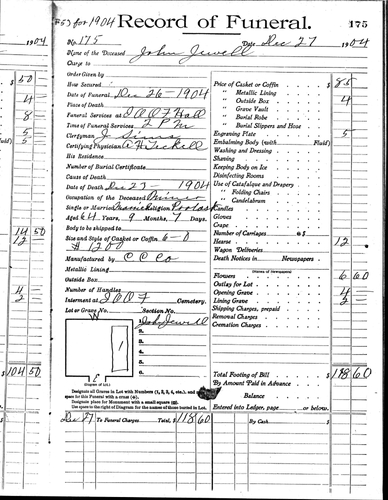 1904
Record of Funeral.
175
No. 175 Date Dec 27 1904
Name of the Deceased John Jewell
Charge to
Order Given by
How Secured
Date of Funeral Dec 26-1904
Place of Death
Funeral Services at IOOF Hall
Time of Funeral Services 2 PM
Clergyman J
Certifying Physician
His Residence
Number of Burial Certificate
Cause of Death
Date of Death Dec 23- 1904
Occupation of the Deceased Miner
Single or Married Married Religion
Aged 64 Years, 9 Months, 7 Days.
Body to be shipped to
Size and Style of Casket or Coffin 6-0
# 1200
Manufactured by C C Co
Metallic Lining
Outside Box
Number of Handles
Interment at IOOF Cemetery.
Lot or Grave No. Section No.
W
1. John Jewell
2.
3.
4.
5.
6.
E
(Diagram of Lot.)
Designate all Graves in Lot with Numbers (1, 2, 3, 4, etc.), and
space for this Funeral with a cross (+).
Designate place for Monument with a small square (□).
Use space to the right of Diagram for the names of those buried in Lot.
Price of Casket or Coffin $ 85
" Metallic Lining
" Outside Box 4
" Grave Vault
" Burial Robe
" Burial Slippers and Hose
Engraving Plate 5
Embalming Body (with Fluid) 5
Washing and Dressing
Shaving
Keeping Body on Ice
Disinfecting Rooms
Use of Catafalque and Drapery
" Folding Chairs
" Candelabrum
Candles
Gloves
Crape
Number of Carriages @ $
Hearse 12
Wagon Deliveries
Death Notices in Newspapers
(Names of Newspapers)
Flowers 6 60
Outlay for Lot
Opening Grave 4
Lining Grave 2
Shipping Charges, prepaid
Removal Charges
Cremation Charges
Total Footing of Bill $ 118 60
By Amount Paid in Advance
Balance
Entered into Ledger, page or below.
Dec 27 To Funeral Charges Total, $ 118 60 By Cash $
1904
$ 50
4
8
5
Fluid) 5
14 50
12
4
2
$ 104 50